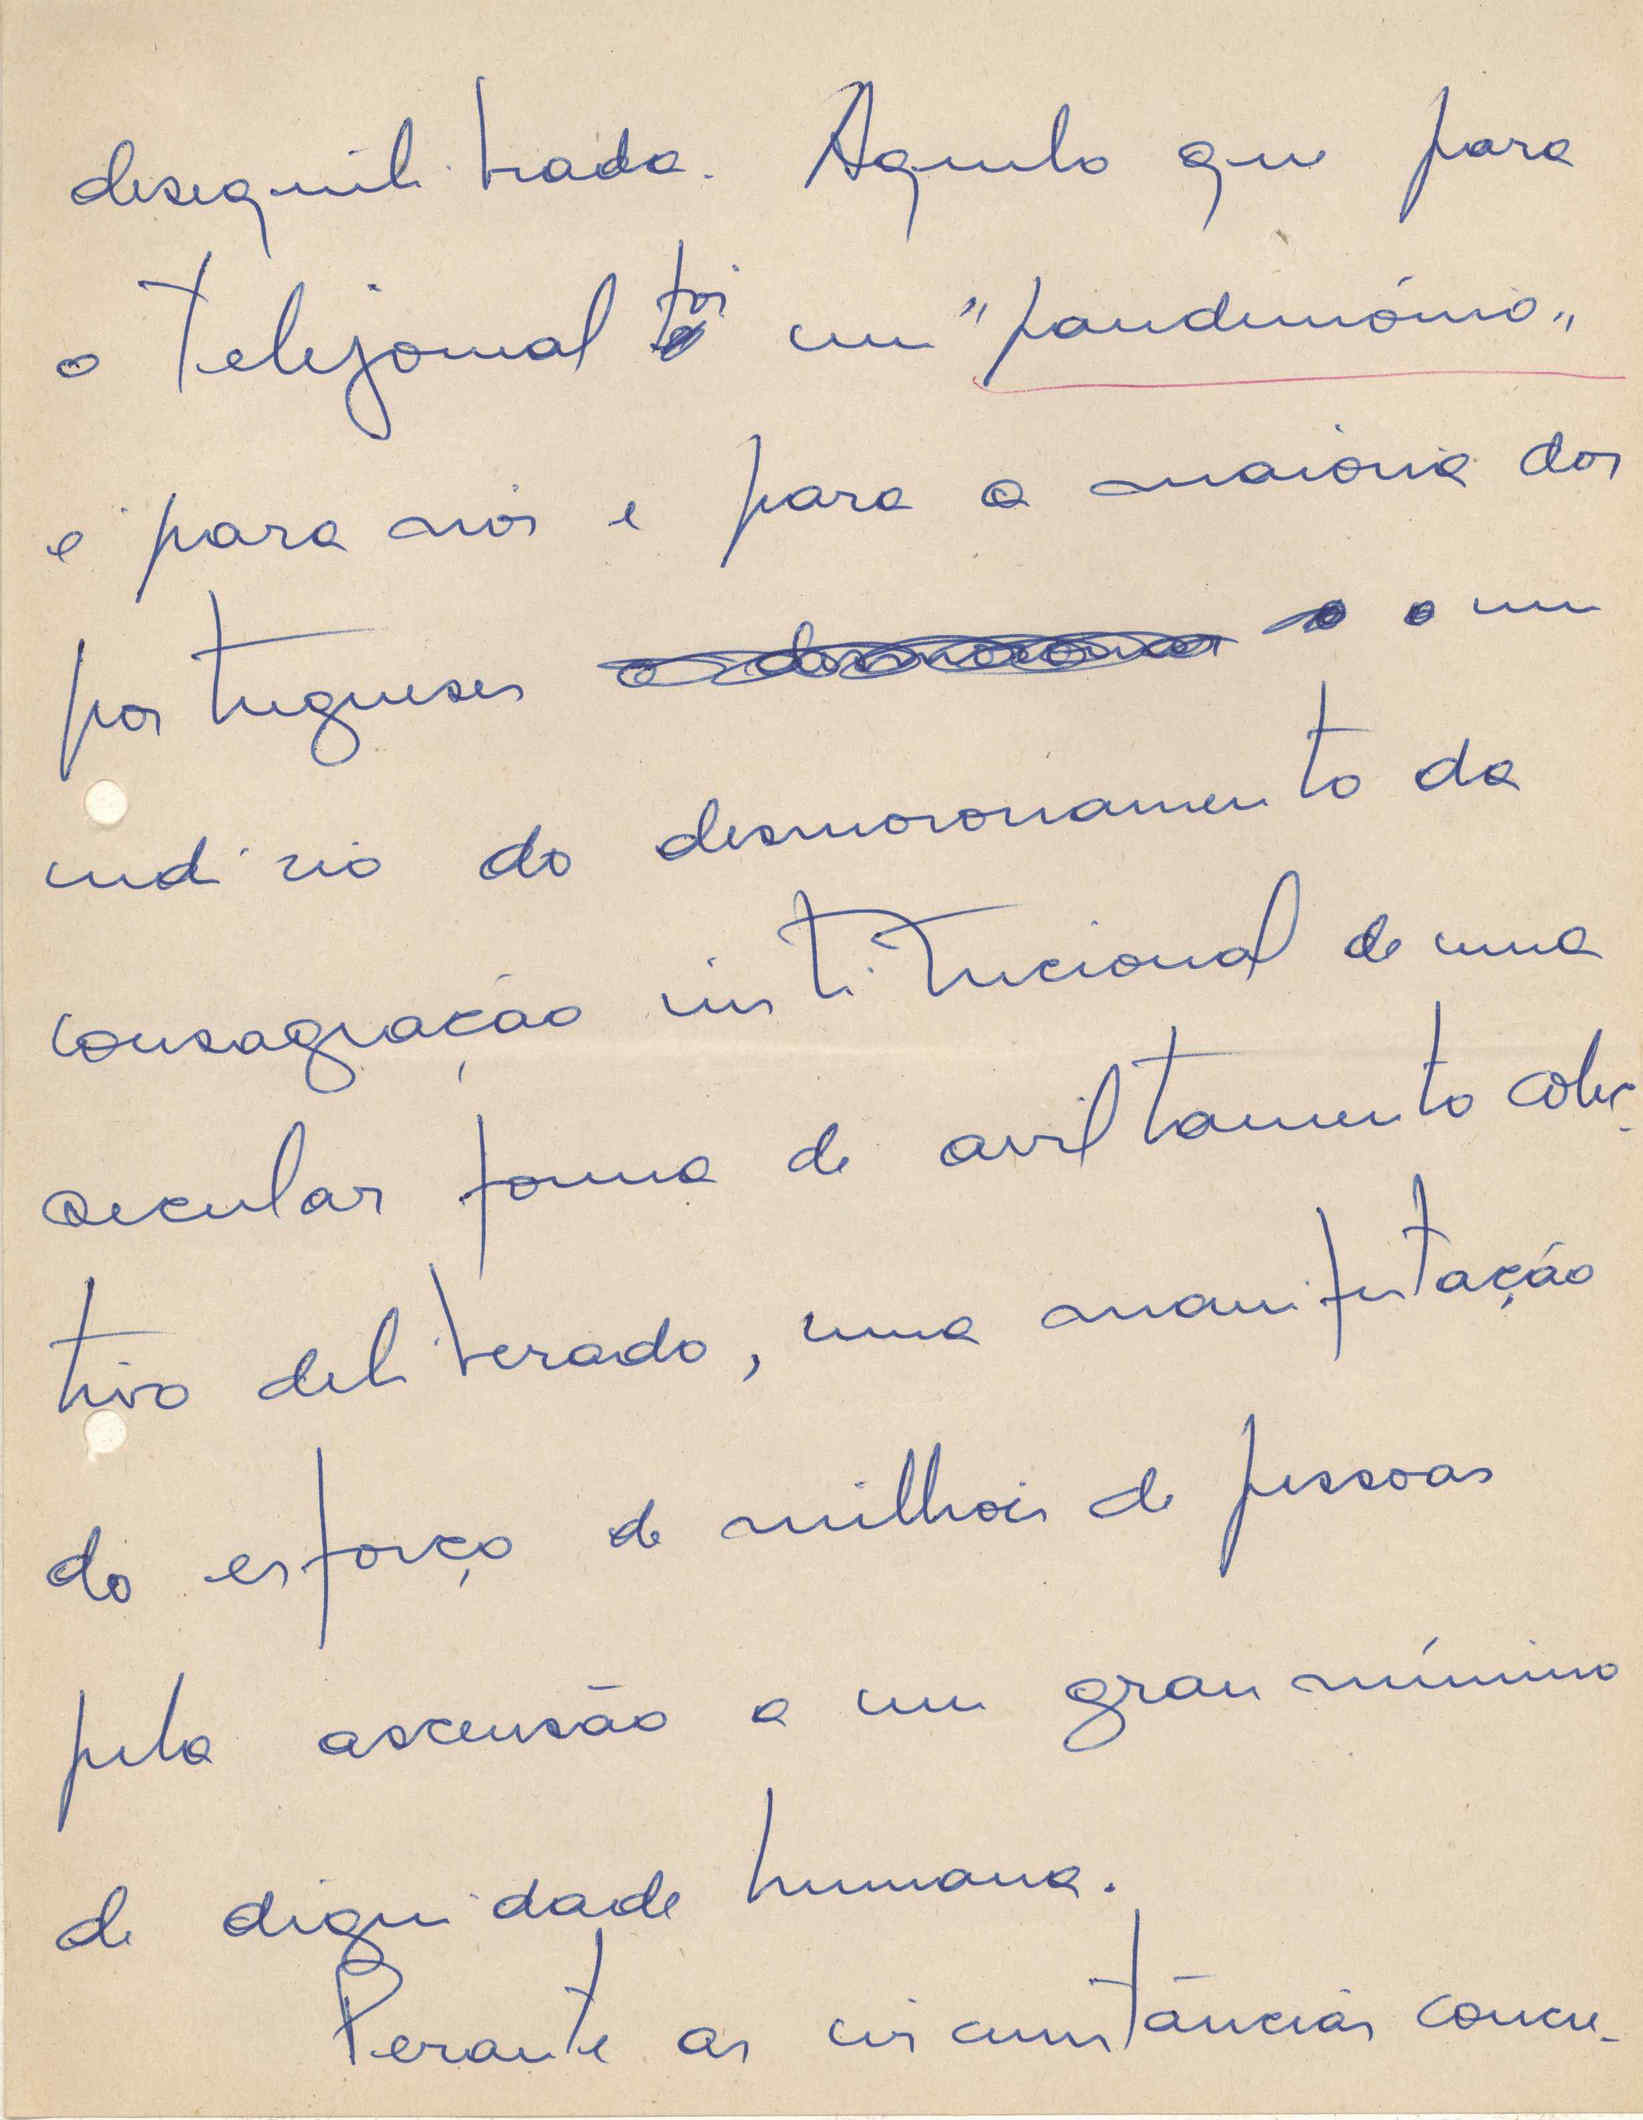 desequilibrada. Aquilo que para
o Telejornal foi um "pandemónio"
é para nós e para a maioria dos
portugueses o um
indício do desmoronamento da
consagração institucional de uma
secular forma de aviltamento colec-
tivo deliberado, uma manifestação
do esforço de milhões de pessoas
pela ascensão a um grau mínimo
de dignidade humana.
Perante as circunstâncias concre-